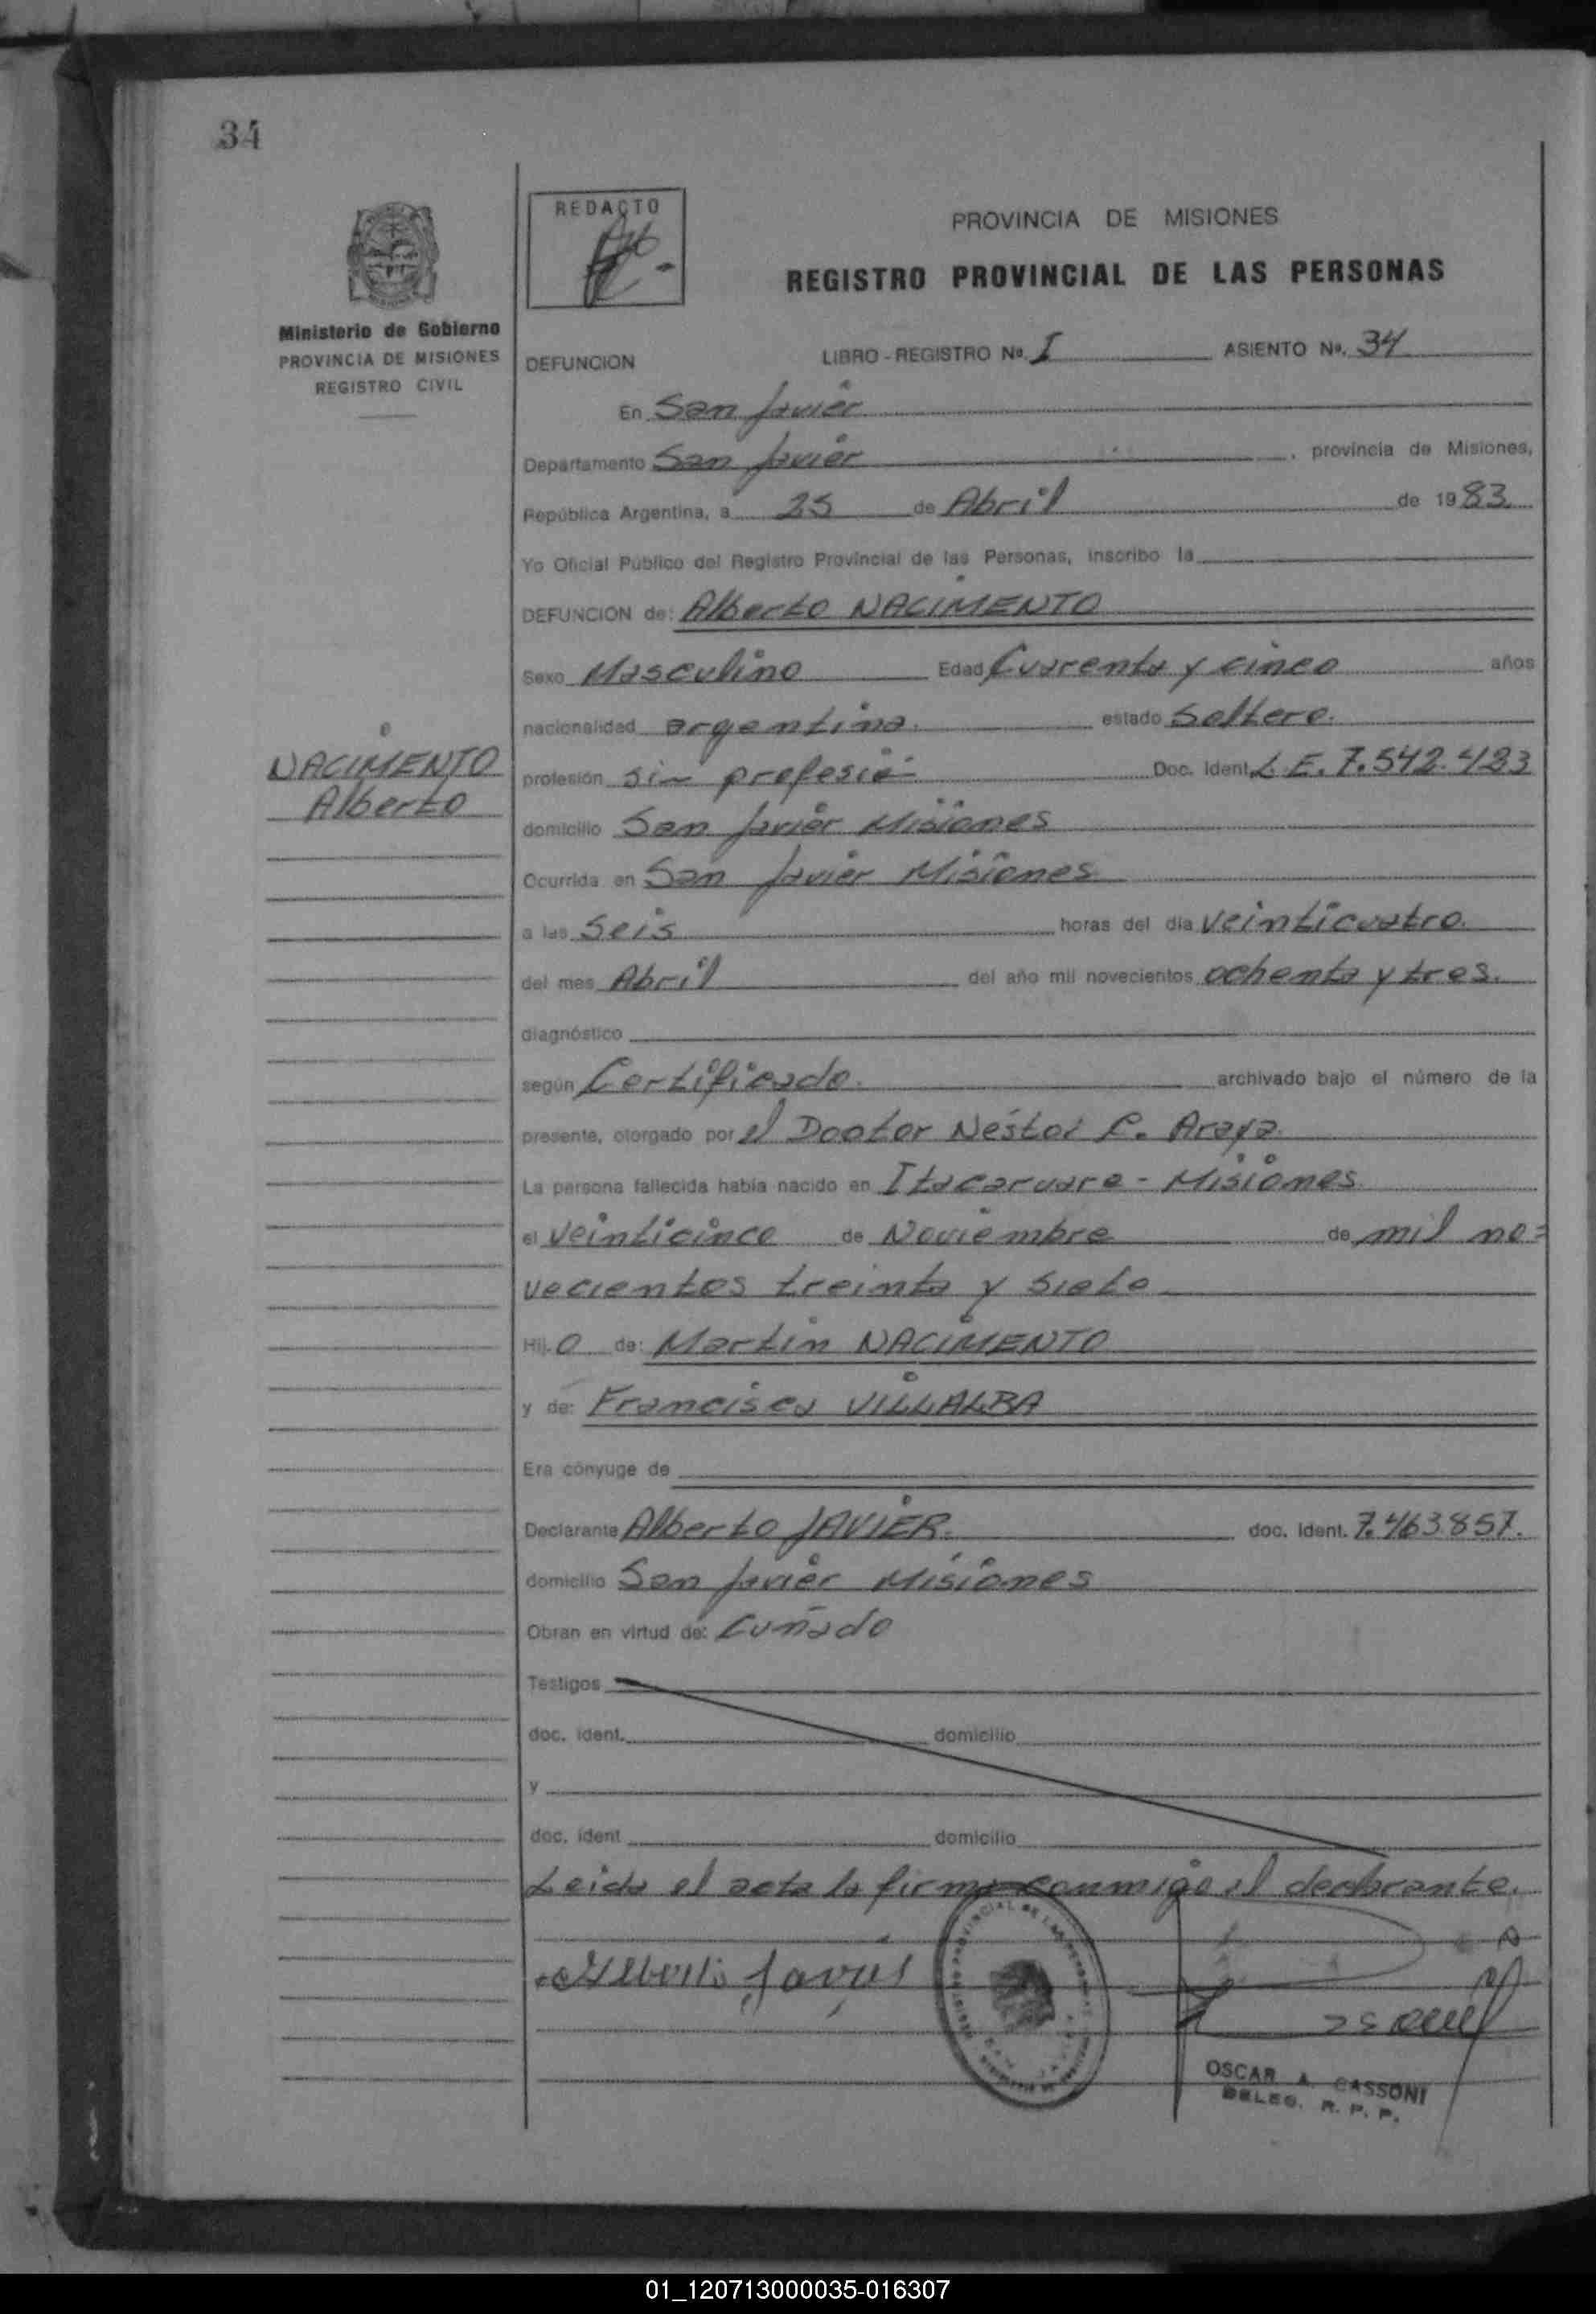 34
REDACTO
PROVINCIA DE MISIONES
REGISTRO PROVINCIAL DE LAS PERSONAS
Ministerio de Gobierno
PROVINCIA DE MISIONES
REGISTRO CIVIL
DEFUNCION LIBRO - REGISTRO Nº. I ASIENTO Nº. 34
En San Javier
Departamento San Javier , provincia de Misiones,
República Argentina, a 25 de Abril de 1983
Yo Oficial Público del Registro Provincial de las Personas, inscribo la
DEFUNCION de: Alberto NACIMENTO
Sexo Masculino Edad Cuarenta y cinco años
nacionalidad argentina. estado Soltero.
NACIMENTO
Alberto
profesión sin profesió- Doc. Ident. L.E. 7.542.423
domicilio San Javier Misiones
Ocurrida en San Javier Misiones
a las Seis horas del día veinticuatro.
del mes Abril del año mil novecientos ochenta y tres.
diagnóstico
según Certificado. archivado bajo el número de la
presente, otorgado por el Doctor Néstor C. Araya.
La persona fallecida había nacido en Itacaruare - Misiones
el veinticinco de Noviembre de mil no=
vecientos treinta y siete
Hij.o de: Martin NACIMENTO
y de: Francisca VILLALBA
Era cónyuge de
Declarante Alberto JAVIER. doc. Ident. 7.463.857.
domicilio San Javier Misiones
Obran en virtud de: Cuñado
Testigos
doc. ident. domicilio
y
doc. ident domicilio
Leida el acta la firma conmigo el declarante.
Alberto Javier
OSCAR A. CASSONI
DELEG. R. P. P.
01_120713000035-016307